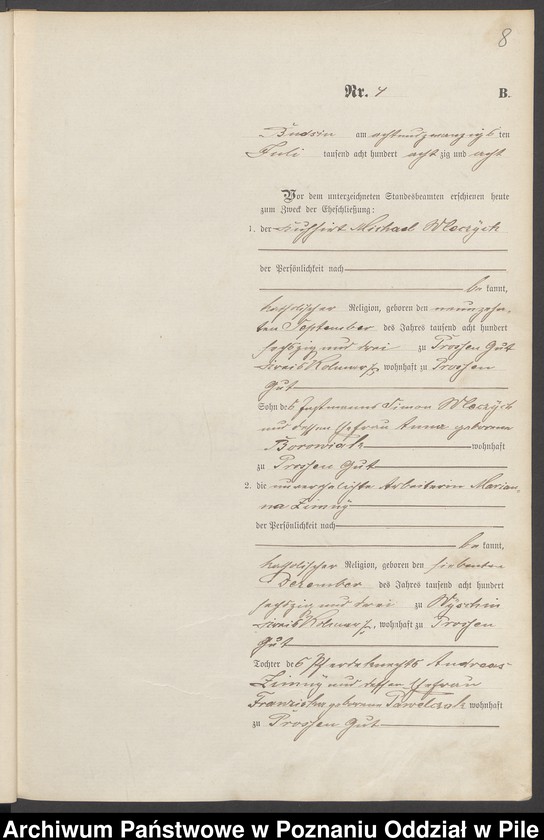 8
Nr. 4
B.
Budsin am achtundzwanzigs ten
Juli tausend acht hundert acht zig und acht
Vor dem unterzeichneten Standesbeamten erschienen heute
zum Zweck der Eheschließung:
1. der Kuhhirt Michael Wleczÿk
der Persönlichkeit nach
be kannt,
katholischer Religion, geboren den neunzehn-
ten September des Jahres tausend acht hundert
sechszig und drei zu Prossen Gut
Kreis Kolmar wohnhaft zu Prossen
Gut
Sohn des Instmanns Simon Wleczÿk
und dessen Ehefrau Anna geborene
Borowiak wohnhaft
zu Prossen Gut
2. die unverehelichte Arbeiterin Marian-
na Zimnÿ
der Persönlichkeit nach
be kannt,
katholischer Religion, geboren den siebenten
Dezember des Jahres tausend acht hundert
sechszig und drei zu Wyschin
Kreis Kolmar, wohnhaft zu Prossen
Gut
Tochter des Pferdeknechts Andreas
Zimnÿ und dessen Ehefrau
Franziska geborene Pawelczak wohnhaft
zu Prossen Gut
Archiwum Państwowe w Poznaniu Oddział w Pile